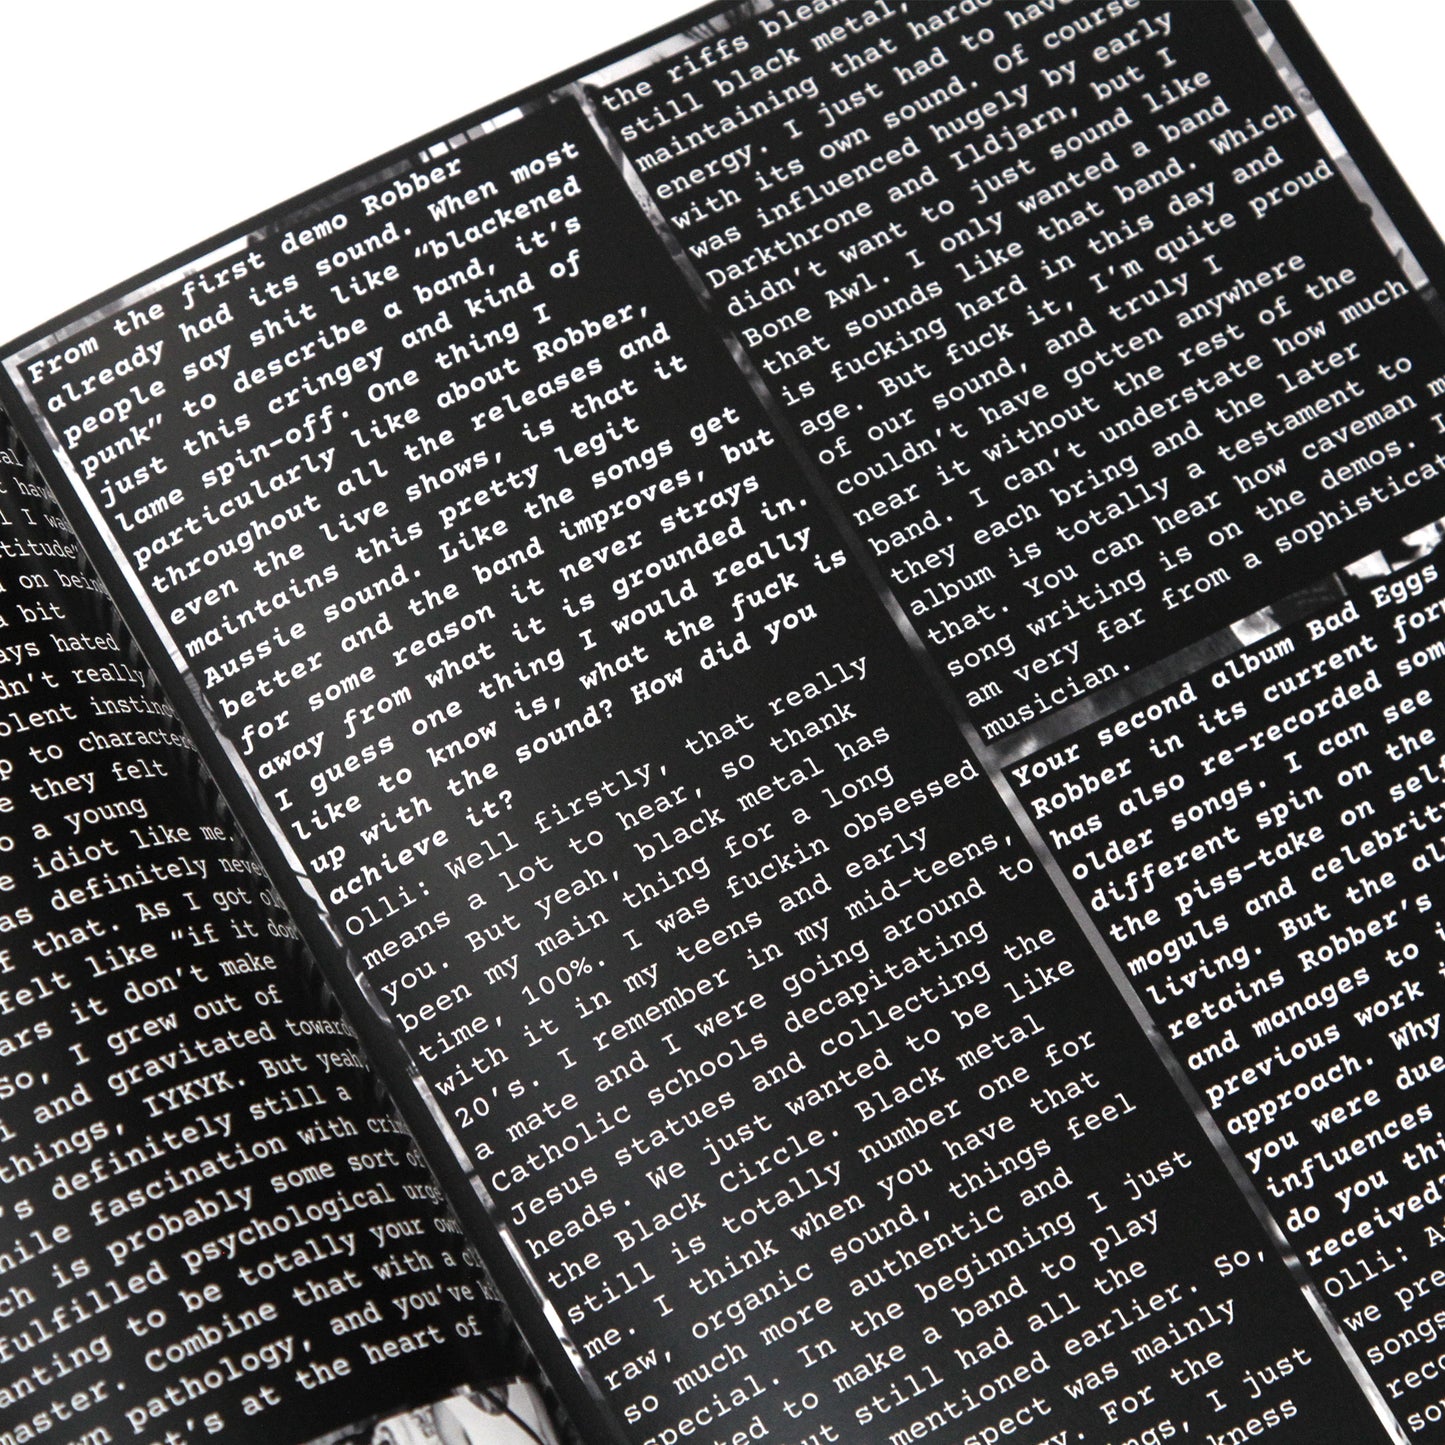 l have
l I was
titude"
d on being
a bit
ays hated
dn't really
olent instinc
p to character
e they felt
o a young
e idiot like me.
as definitely never
f that. As I got ol
felt like "if it don't
ars it don't make
so, I grew out of
i and gravitated towards
things, IYKYK. But yeah,
's definitely still a
hile fascination with crim
ch is probably some sort of
fulfilled psychological urge
anting to be totally your own
master. Combine that with a c
wn pathology, and you've
t's at the heart of
From the first demo Robber
already had its sound. When most
people say shit like "blackened
punk" to describe a band, it's
just this cringey and kind of
lame spin-off. One thing I
particularly like about Robber,
throughout all the releases and
even the live shows, is that it
maintains this pretty legit
Aussie sound. Like the songs get
better and the band improves, but
for some reason it never strays
away from what it is grounded in.
I guess one thing I would really
like to know is, what the fuck is
up with the sound? How did you
achieve it?
Olli: Well firstly, that really
means a lot to hear, so thank
you. But yeah, black metal has
been my main thing for a long
time, 100%. I was fuckin obsessed
with it in my teens and early
20's. I remember in my mid-teens,
a mate and I were going around to
Catholic schools decapitating
Jesus statues and collecting the
heads. We just wanted to be like
the Black Circle. Black metal
still is totally number one for
me. I think when you have that
raw, organic sound, things feel
so much more authentic and
special. In the beginning I just
ted to make a band to play
but still had all the
mentioned earlier. So,
spect was mainly
y. For the
ngs, I just
kness
the riffs blea
still black metal,
maintaining that hardc
energy. I just had to have
with its own sound. Of course
was influenced hugely by early
Darkthrone and Ildjarn, but I
didn't want to just sound like
Bone Awl. I only wanted a band
that sounds like that band. Which
is fucking hard in this day and
age. But fuck it, I'm quite proud
of our sound, and truly I
couldn't have gotten anywhere
near it without the rest of the
band. I can't understate how much
they each bring and the later
album is totally a testament to
that. You can hear how caveman m
song writing is on the demos. I
am very far from a sophisticat
musician.
Your second album Bad Eggs
Robber in its current for
has also re-recorded som
older songs. I can see
different spin on the
the piss-take on self
moguls and celebrity
living. But the al
retains Robber's
and manages to
previous work
approach. Why
you were due
influences
do you thi
received?
Olli: A
we pre
songs
reco
son